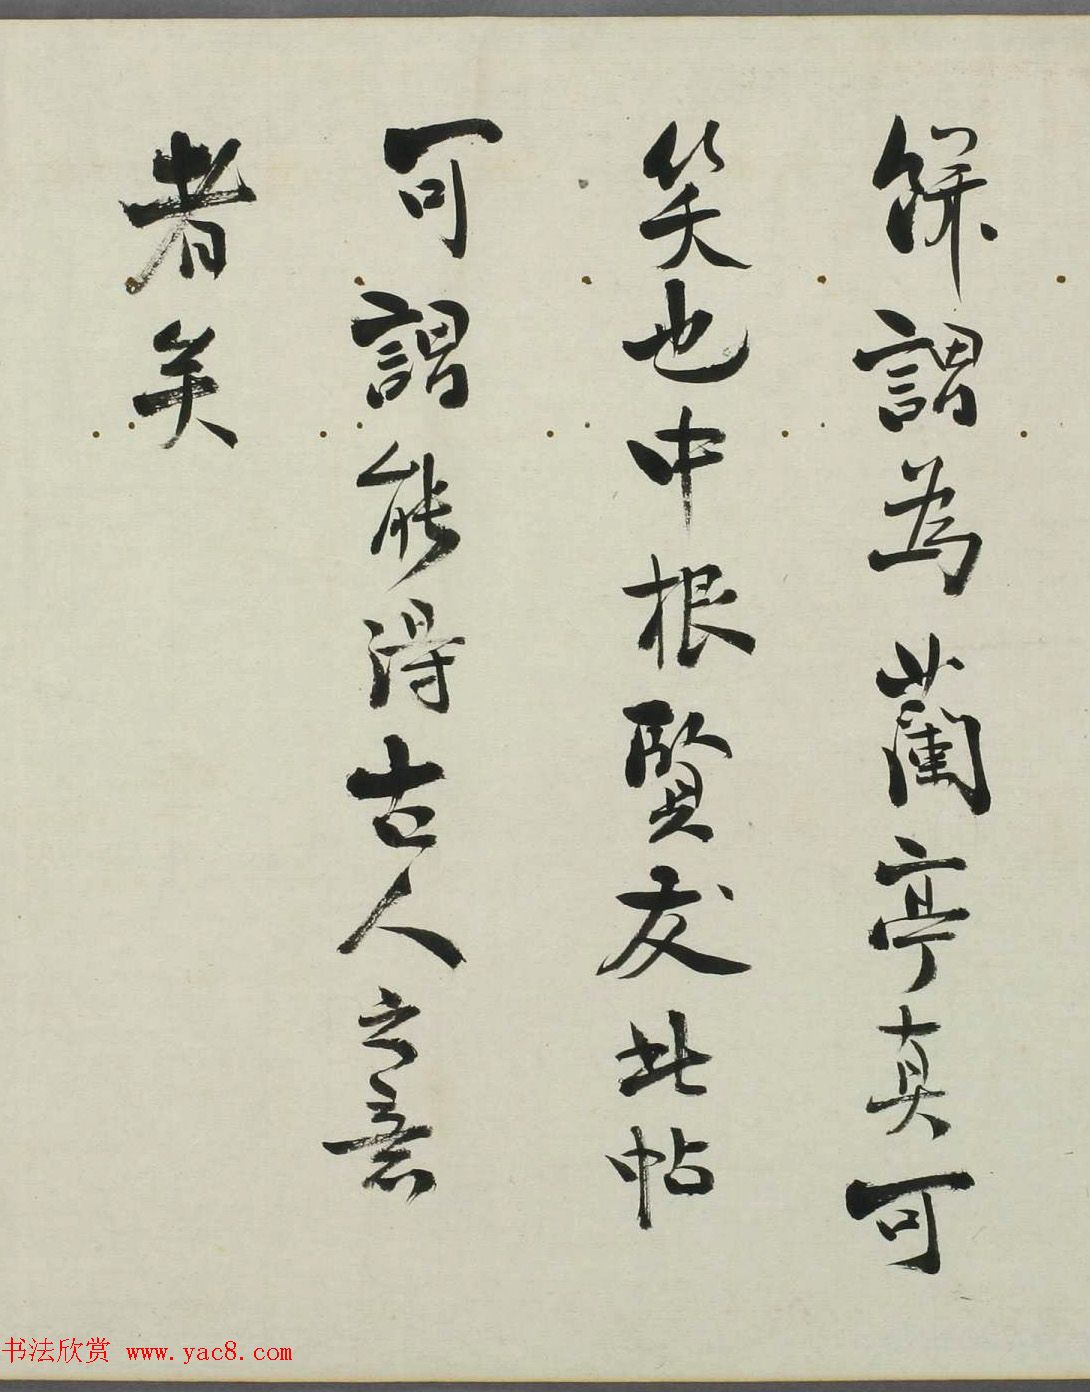 餅謂為蘭亭真可
笑也中根賢友此帖
可謂能得古人之意
者矣
书法欣赏 www.yac8.com